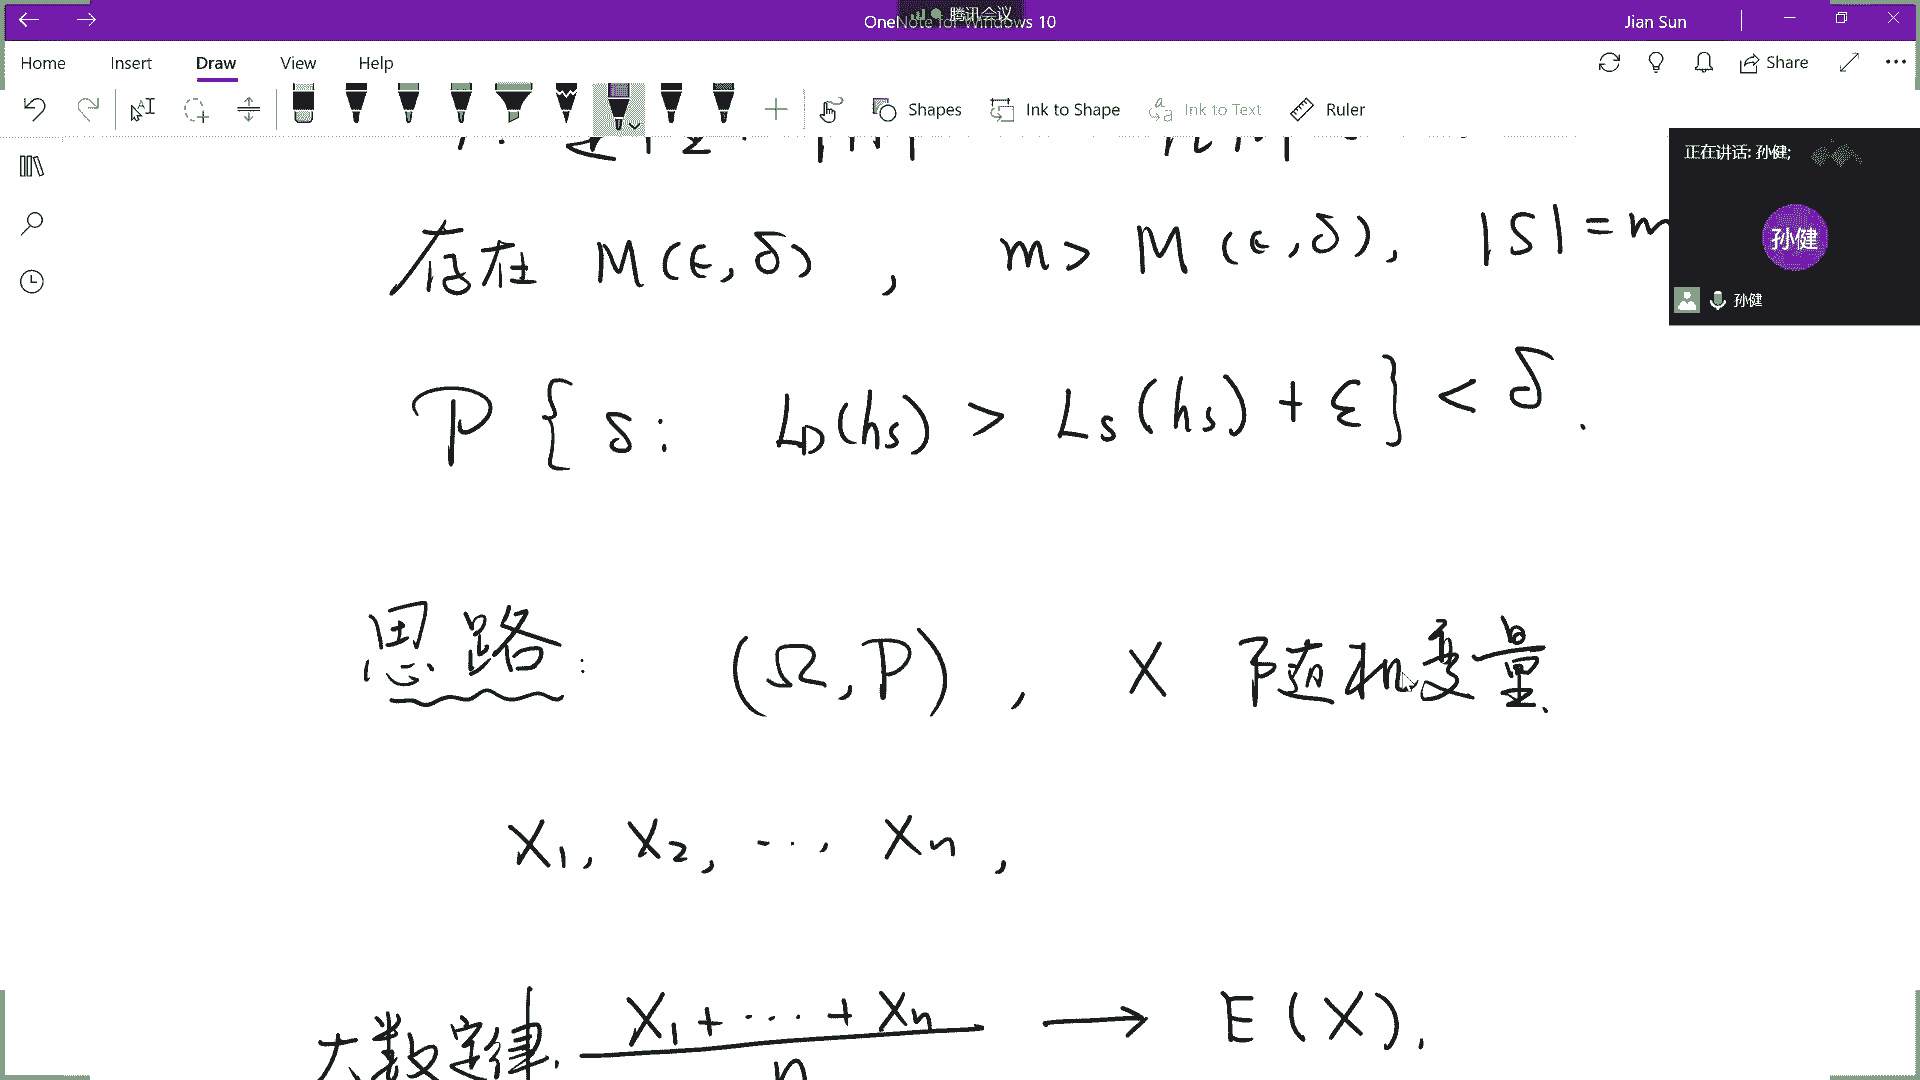 腾讯会议
OneNote for Windows 10
Jian Sun
Home Insert Draw View Help
Share
Shapes Ink to Shape Ink to Text Ruler
正在讲话: 孙健;
孙健
孙健
存在 M(ε, δ) , m > M(ε, δ), |S| = m
P { S: L_D(h_s) > L_S(h_s) + ε } < δ.
思路: (Ω, P) , X 随机变量.
X₁, X₂, ..., Xn,
大数定律. X₁ + ... + Xn / n → E(X).